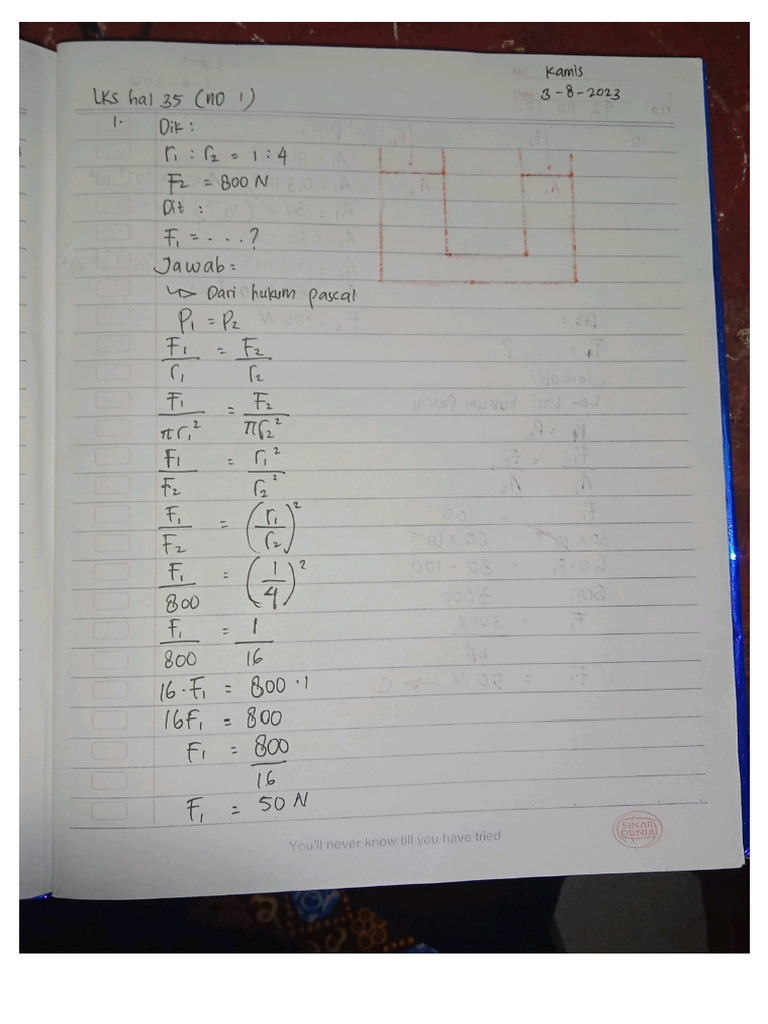 No. Kamis
Date 3-8-2023
LKS hal 35 (no 1)
1. Dik:
r₁ : r₂ = 1 : 4
F₂ = 800 N
Dit :
F₁ = . . . ?
Jawab:
↳ Dari hukum pascal
P₁ = P₂
F₁/r₁ = F₂/r₂
F₁/πr₁² = F₂/πr₂²
F₁/F₂ = r₁²/r₂²
F₁/F₂ = (r₁/r₂)²
F₁/800 = (1/4)²
F₁/800 = 1/16
16 · F₁ = 800 · 1
16F₁ = 800
F₁ = 800/16
F₁ = 50 N
You'll never know till you have tried
SINAR
DUNIA